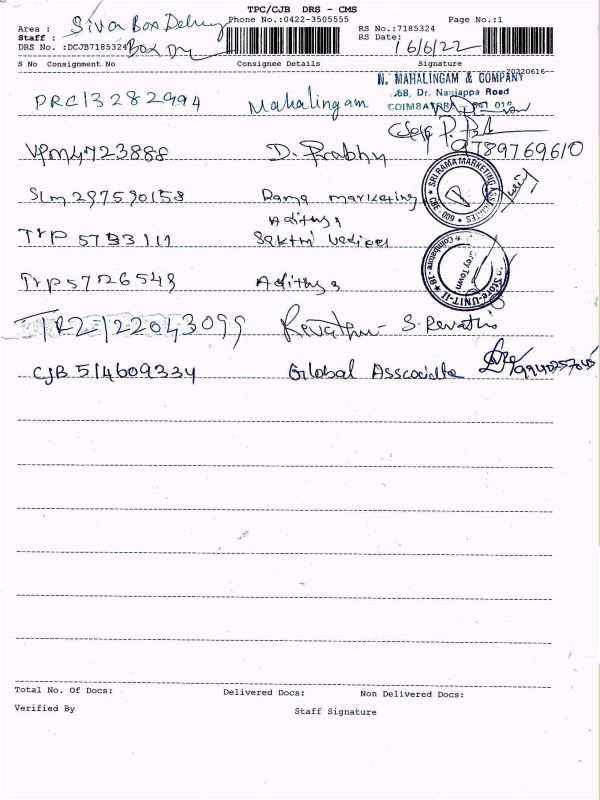 TPC/CJB DRS - CMS
Area : Siva Box Delivery Phone No.:0422-3505555 Page No.:1
Staff :
RS No.:7185324
RS Date: 16/6/22
DRS No. :DCJB7185324 Box
20220616
S No Consignment No Consignee Details Signature
N. MAHALINGAM & COMPANY
68, Dr. Nanjappa Road
COIMBATORE
PRC13282994 Mahalingam
VPM4723888 D. Prabhu 9789769610
SRI RAMA MARKETING ASSOCIATES CBE
SLM297590158 Rama marketing
Adithya
TYP5793111 Sakthi
TYP5726549 Adithya
Store-UNIT-II Coimbatore
TRZ122043099 Revathi S. Revathi
CJB514609334 Global Asscociate
Total No. Of Docs: Delivered Docs: Non Delivered Docs:
Verified By Staff Signature